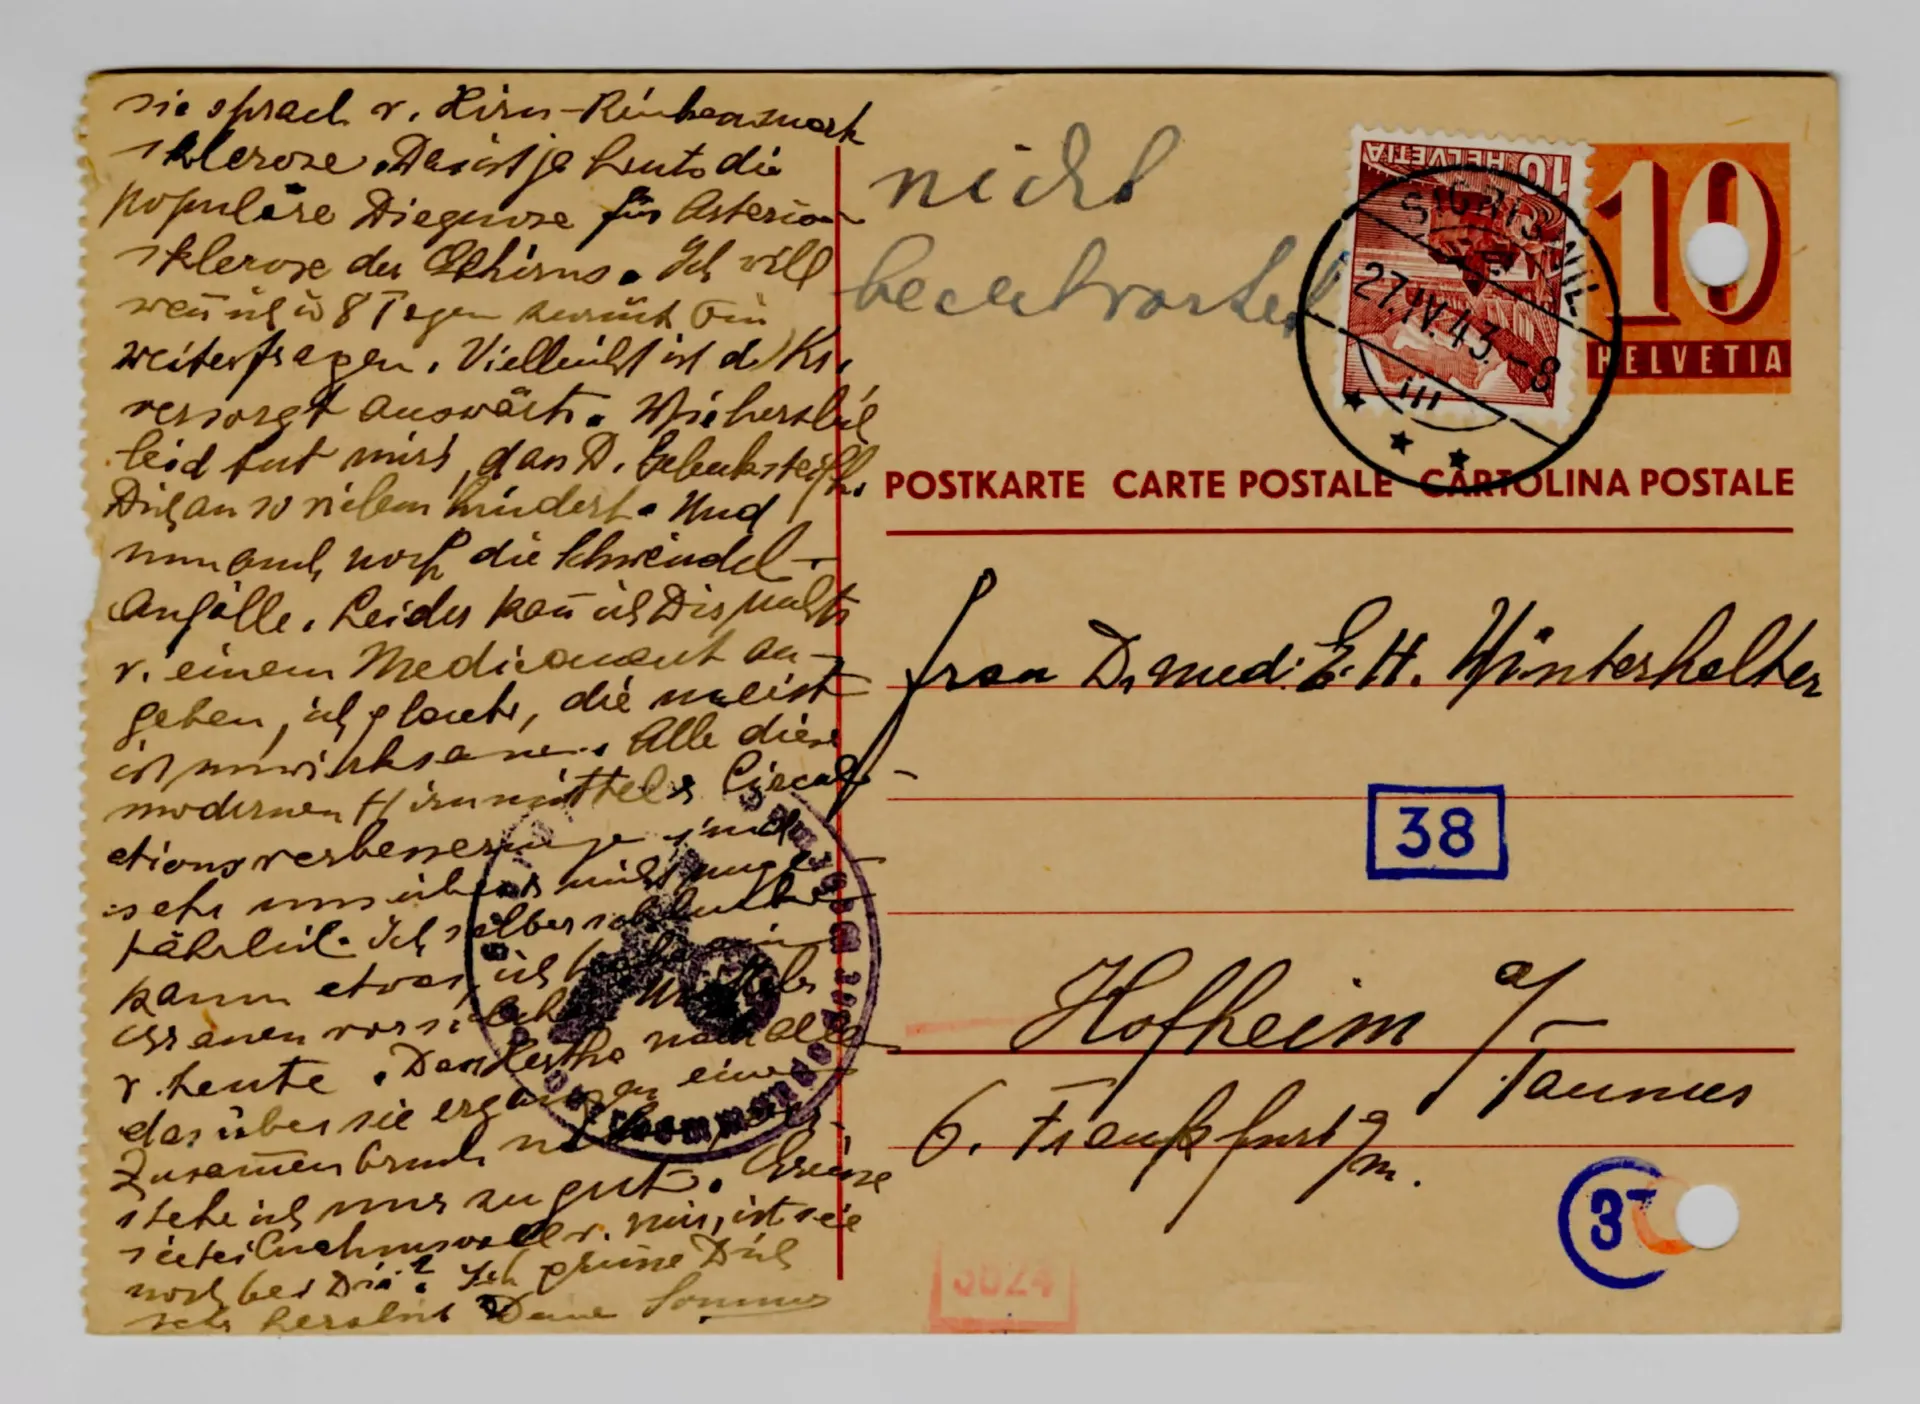 sie sprach v. Hirn-Rückenmark
sklerose. Das ist ja heute die
populäre Diegnose für Asterio-
sklerose des Gehirns. Ich will
weñ ich in 8 Tagen zurück bin
weiterfragen. Vielleicht ist d. Kr.
versorgt auswärts. Wie herzlich
leid tut mirs, das D. Gelenksteifh.
Dich an so vielem hindert. Und
nun auch noch die Schwindel-
Anfälle. Leider kañ ich Dir nichts
v. einem Medicament an-
geben, ich glaube, die meist
ist unwirksam. Alle diese
modernen Hirnmittel & Circul-
ations verbesserung sind
sehr uns über nicht unge-
fährlich. Ich selber schlucke
kaum etwas, ich
v. heute. Das Hertha nach alle
das über sie ergangen einen
Zusam̄enbruch
stehe ich nur zu gut. Grüsse
sie teilnahmsvoll v. mir, ist sie
noch bei Dir? Ich grüsse Dich
sehr herzlich Deine Sommer
nicht
beantwortet
HELVETIA 10
SIGRISWIL
27.IV.43.-8
10
HELVETIA
POSTKARTE CARTE POSTALE CARTOLINA POSTALE
Frau Dr. med. E. H. Winterhalter
38
Hofheim a/
Taunus
b. Frankfurt a/m.
3
3624